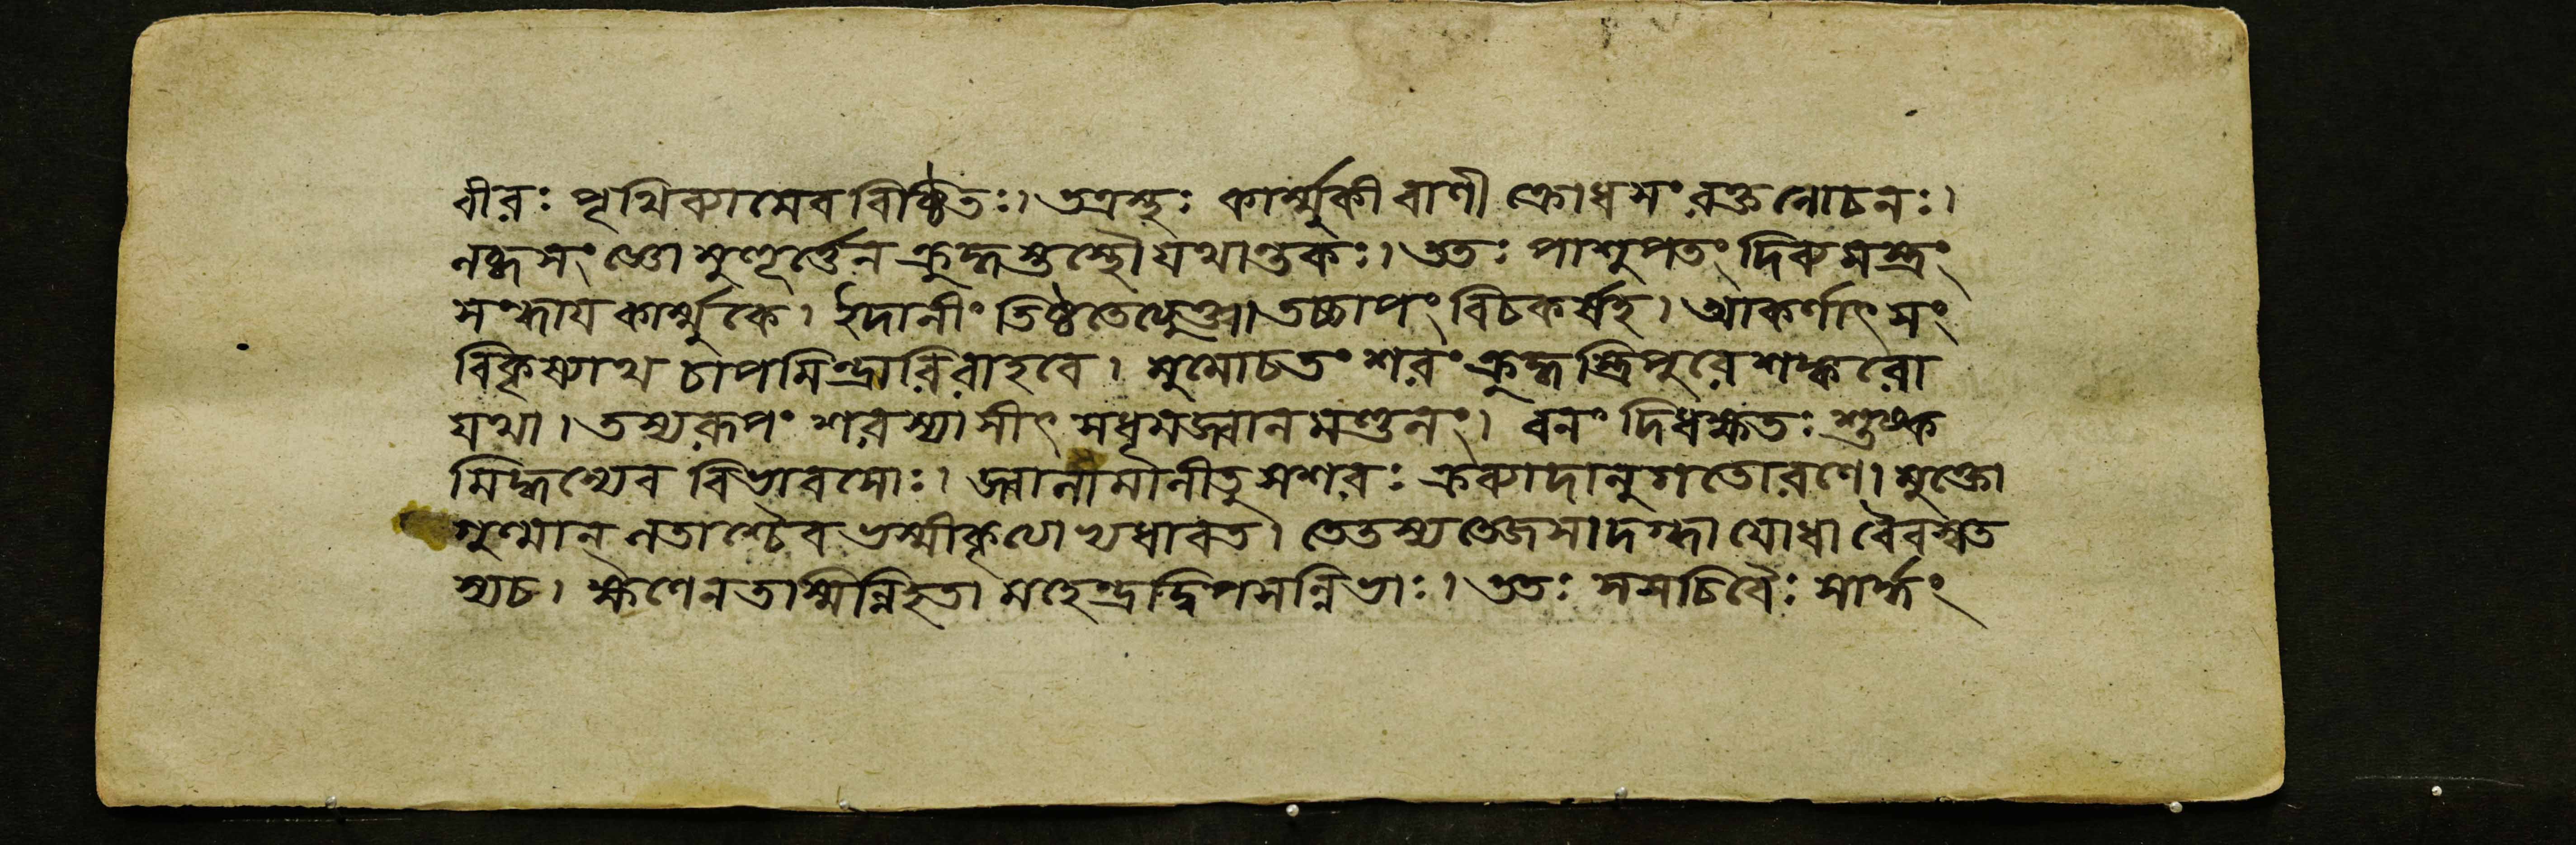 বীরঃ পৃথিব্যামেব বিষ্ঠিতঃ। তত্রস্থঃ কার্ম্মুকী বাণী ক্রোধসংরক্তলোচনঃ।
লব্ধসংজ্ঞো মুহূর্ত্তেন ক্রুদ্ধস্তস্থৌ যথান্তকঃ। ততঃ পাশুপতং দিব্যমস্ত্রং
সন্ধায কার্ম্মুকে। ইদানীং তিষ্ঠতেত্যুক্ত্বা তচ্চাপং বিচকর্ষহ। আকর্ণাৎ সং
বিকৃষ্যাথ চাপমিন্দ্রারিরাহবে। মুমোচতং শরং ক্রুদ্ধস্ত্রিপুরে শঙ্করো
যথা। তস্যরূপং শরস্যাসীৎ সধূমজ্বালমণ্ডলং। বনং দিধক্ষতঃ শুষ্ক
মিদ্ধস্যেব বিভাবসোঃ। জ্বালামালীতু সশরঃ ক্রব্যাদানুগতোরণে। মুক্তো
গুল্মান্ লতাশ্চৈব ভস্মীকৃত্যোভ্যধাবত। তেতস্য তেজসা দগ্ধা যোধা বৈবস্বত
স্যচ। ক্ষণেন তস্মিন্নিহতা মহেন্দ্রদ্বিপসন্নিভাঃ। ততঃ সসচিবৈঃ সার্দ্ধং